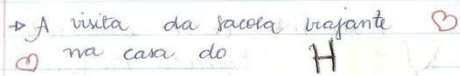 → A visita da sacola viajante ♡
♡ na casa do H